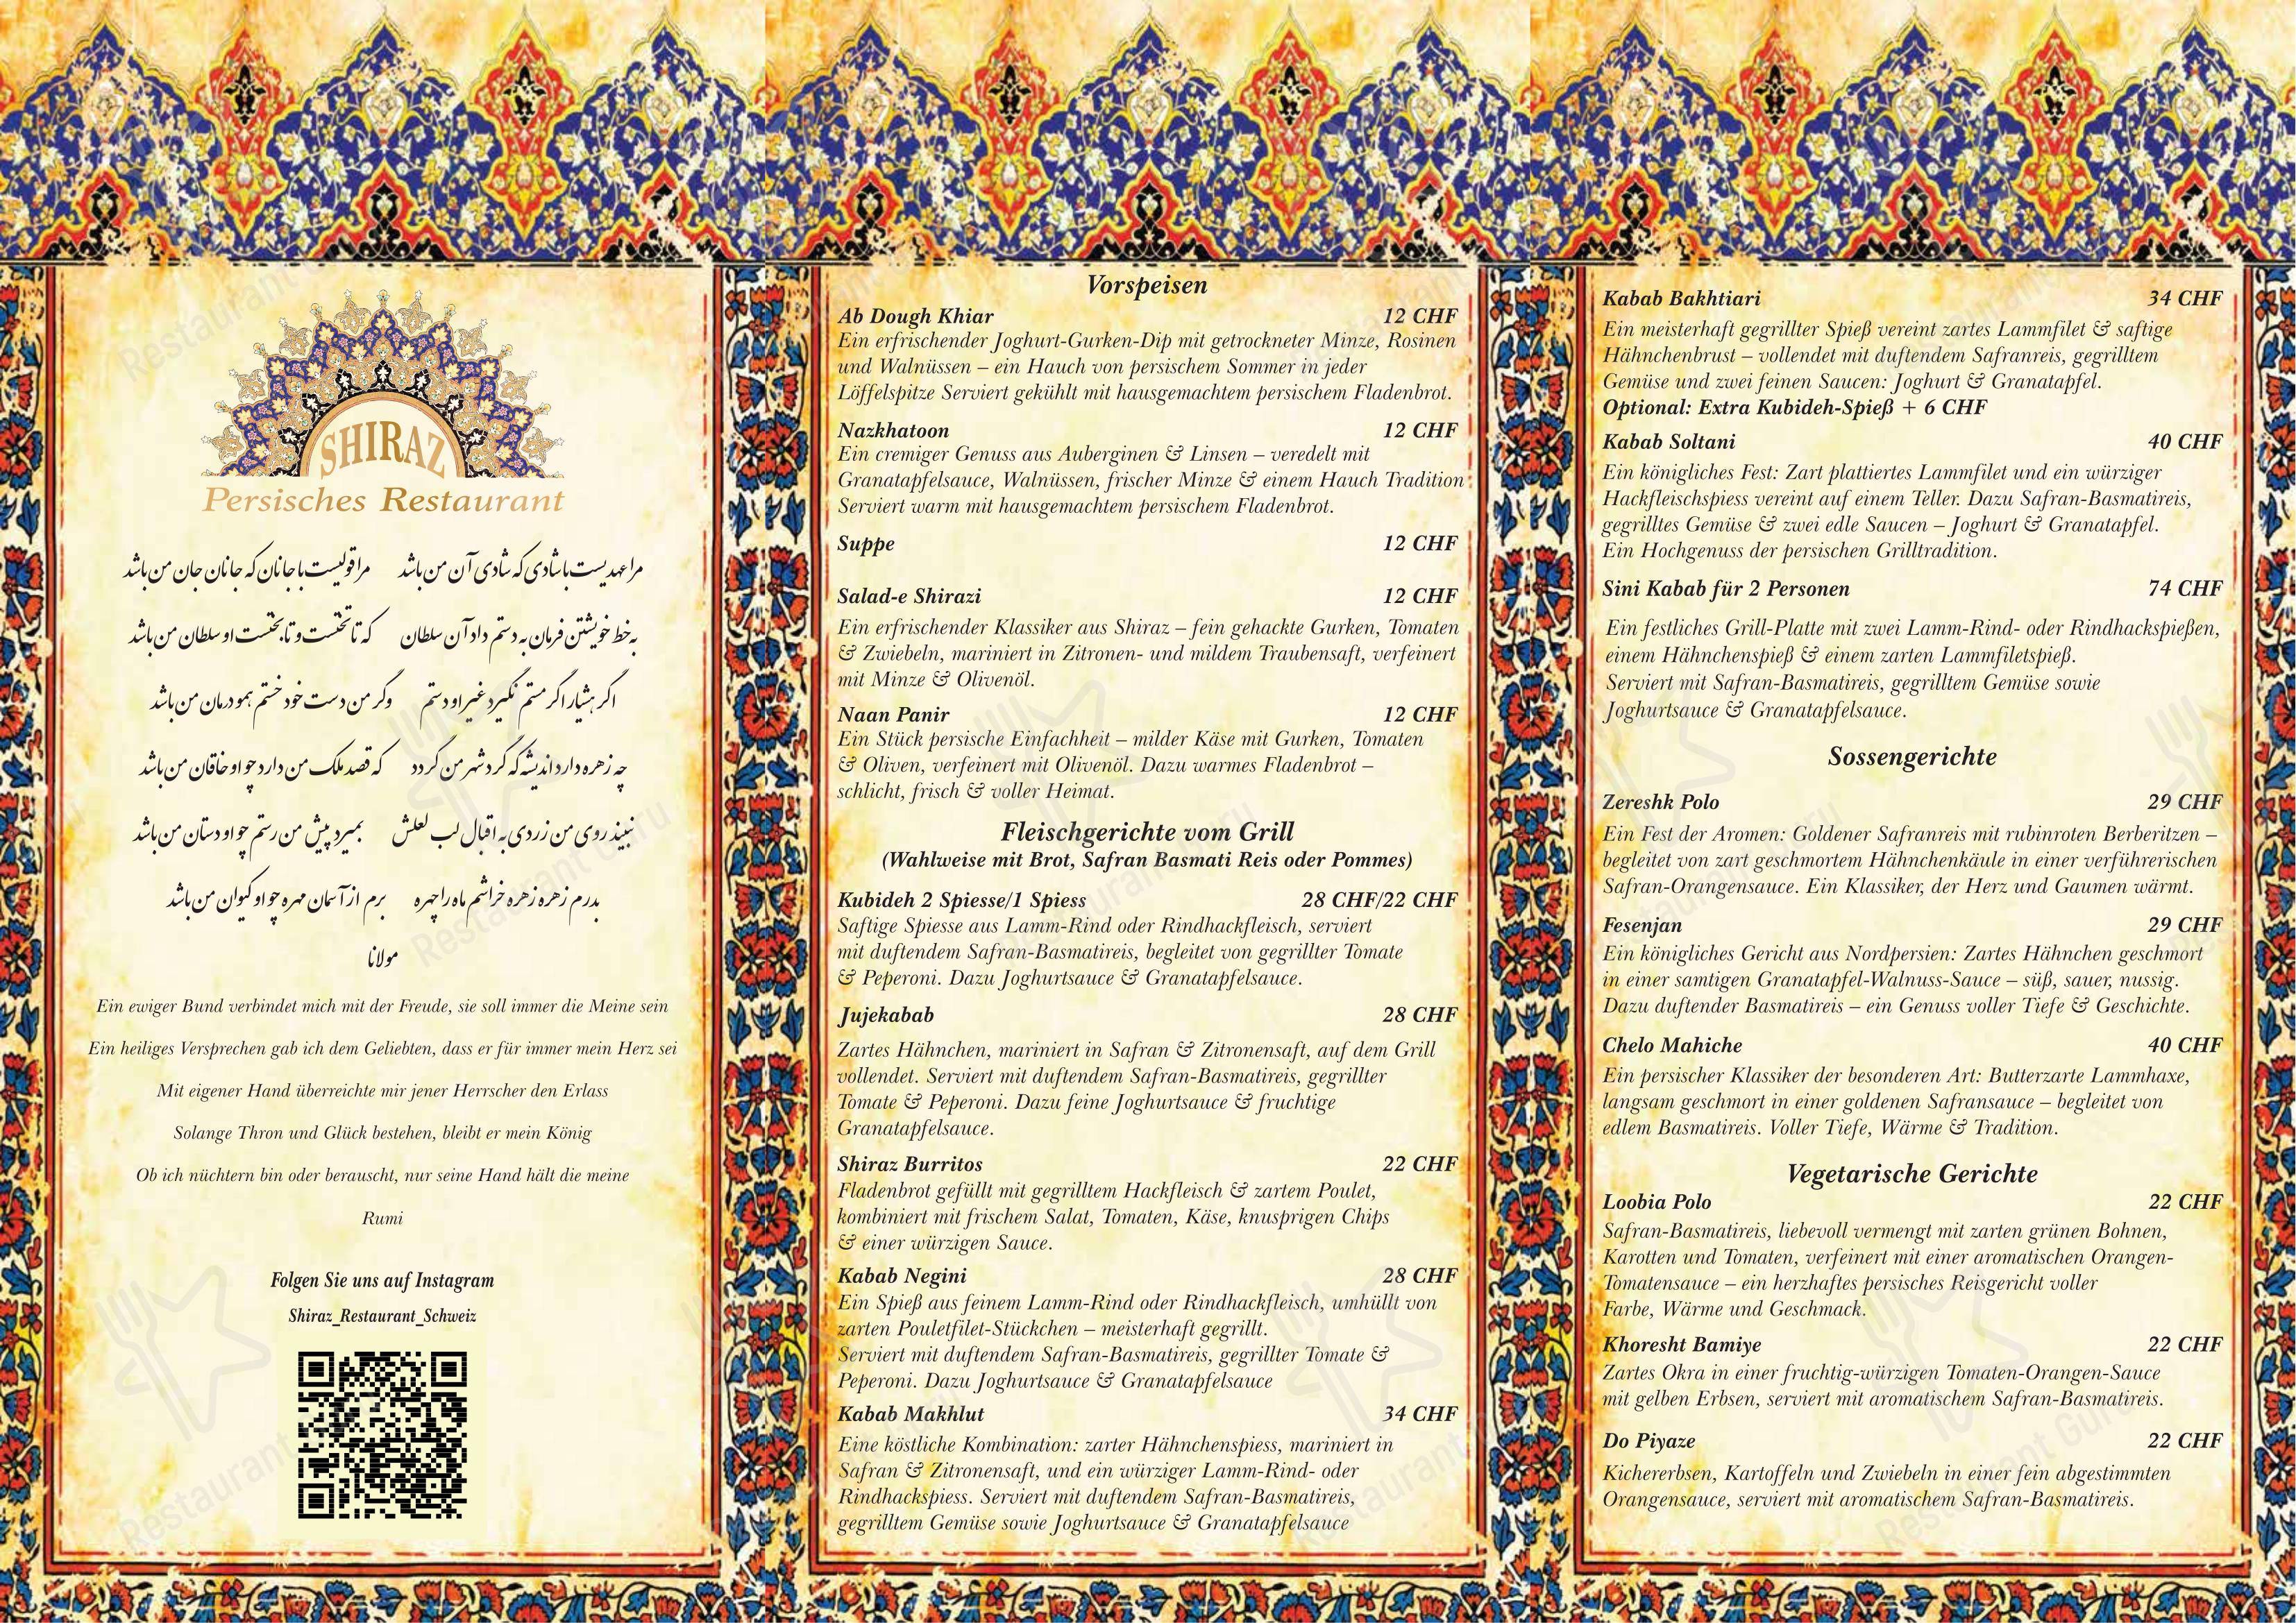 SHIRAZ
Persisches Restaurant
مرا عهدیست با شادی که شادی آن من باشد مرا قولیست با جانان که جانان جان من باشد
به خط خویشتن فرمان به دستم داد آن سلطان که تا تختست و تا بختست او سلطان من باشد
اگر هشیار اگر مستم نگیرد غیر او دستم وگر من دست خود خستم همو درمان من باشد
چه زهره دارد اندیشه که گرد شهر من گردد که قصد ملک من دارد چو او خاقان من باشد
نبیند روی من زردی به اقبال لب لعلش بمیرد پیش من رستم چو او دستان من باشد
بدرم زهره زهره خراشم ماه را چهره برم از آسمان مهره چو او کیوان من باشد
مولانا
Ein ewiger Bund verbindet mich mit der Freude, sie soll immer die Meine sein
Ein heiliges Versprechen gab ich dem Geliebten, dass er für immer mein Herz sei
Mit eigener Hand überreichte mir jener Herrscher den Erlass
Solange Thron und Glück bestehen, bleibt er mein König
Ob ich nüchtern bin oder berauscht, nur seine Hand hält die meine
Rumi
Folgen Sie uns auf Instagram
Shiraz_Restaurant_Schweiz
Vorspeisen
Ab Dough Khiar 12 CHF
Ein erfrischender Joghurt-Gurken-Dip mit getrockneter Minze, Rosinen
und Walnüssen – ein Hauch von persischem Sommer in jeder
Löffelspitze Serviert gekühlt mit hausgemachtem persischem Fladenbrot.
Nazkhatoon 12 CHF
Ein cremiger Genuss aus Auberginen & Linsen – veredelt mit
Granatapfelsauce, Walnüssen, frischer Minze & einem Hauch Tradition
Serviert warm mit hausgemachtem persischem Fladenbrot.
Suppe 12 CHF
Salad-e Shirazi 12 CHF
Ein erfrischender Klassiker aus Shiraz – fein gehackte Gurken, Tomaten
& Zwiebeln, mariniert in Zitronen- und mildem Traubensaft, verfeinert
mit Minze & Olivenöl.
Naan Panir 12 CHF
Ein Stück persische Einfachheit – milder Käse mit Gurken, Tomaten
& Oliven, verfeinert mit Olivenöl. Dazu warmes Fladenbrot –
schlicht, frisch & voller Heimat.
Fleischgerichte vom Grill
(Wahlweise mit Brot, Safran Basmati Reis oder Pommes)
Kubideh 2 Spiesse/1 Spiess 28 CHF/22 CHF
Saftige Spiesse aus Lamm-Rind oder Rindhackfleisch, serviert
mit duftendem Safran-Basmatireis, begleitet von gegrillter Tomate
& Peperoni. Dazu Joghurtsauce & Granatapfelsauce.
Jujekabab 28 CHF
Zartes Hähnchen, mariniert in Safran & Zitronensaft, auf dem Grill
vollendet. Serviert mit duftendem Safran-Basmatireis, gegrillter
Tomate & Peperoni. Dazu feine Joghurtsauce & fruchtige
Granatapfelsauce.
Shiraz Burritos 22 CHF
Fladenbrot gefüllt mit gegrilltem Hackfleisch & zartem Poulet,
kombiniert mit frischem Salat, Tomaten, Käse, knusprigen Chips
& einer würzigen Sauce.
Kabab Negini 28 CHF
Ein Spieß aus feinem Lamm-Rind oder Rindhackfleisch, umhüllt von
zarten Pouletfilet-Stückchen – meisterhaft gegrillt.
Serviert mit duftendem Safran-Basmatireis, gegrillter Tomate &
Peperoni. Dazu Joghurtsauce & Granatapfelsauce
Kabab Makhlut 34 CHF
Eine köstliche Kombination: zarter Hähnchenspiess, mariniert in
Safran & Zitronensaft, und ein würziger Lamm-Rind- oder
Rindhackspiess. Serviert mit duftendem Safran-Basmatireis,
gegrilltem Gemüse sowie Joghurtsauce & Granatapfelsauce
Kabab Bakhtiari 34 CHF
Ein meisterhaft gegrillter Spieß vereint zartes Lammfilet & saftige
Hähnchenbrust – vollendet mit duftendem Safranreis, gegrilltem
Gemüse und zwei feinen Saucen: Joghurt & Granatapfel.
Optional: Extra Kubideh-Spieß + 6 CHF
Kabab Soltani 40 CHF
Ein königliches Fest: Zart plattiertes Lammfilet und ein würziger
Hackfleischspiess vereint auf einem Teller. Dazu Safran-Basmatireis,
gegrilltes Gemüse & zwei edle Saucen – Joghurt & Granatapfel.
Ein Hochgenuss der persischen Grilltradition.
Sini Kabab für 2 Personen 74 CHF
Ein festliches Grill-Platte mit zwei Lamm-Rind- oder Rindhackspießen,
einem Hähnchenspieß & einem zarten Lammfiletspieß.
Serviert mit Safran-Basmatireis, gegrilltem Gemüse sowie
Joghurtsauce & Granatapfelsauce.
Sossengerichte
Zereshk Polo 29 CHF
Ein Fest der Aromen: Goldener Safranreis mit rubinroten Berberitzen –
begleitet von zart geschmortem Hähnchenkäule in einer verführerischen
Safran-Orangensauce. Ein Klassiker, der Herz und Gaumen wärmt.
Fesenjan 29 CHF
Ein königliches Gericht aus Nordpersien: Zartes Hähnchen geschmort
in einer samtigen Granatapfel-Walnuss-Sauce – süß, sauer, nussig.
Dazu duftender Basmatireis – ein Genuss voller Tiefe & Geschichte.
Chelo Mahiche 40 CHF
Ein persischer Klassiker der besonderen Art: Butterzarte Lammhaxe,
langsam geschmort in einer goldenen Safransauce – begleitet von
edlem Basmatireis. Voller Tiefe, Wärme & Tradition.
Vegetarische Gerichte
Loobia Polo 22 CHF
Safran-Basmatireis, liebevoll vermengt mit zarten grünen Bohnen,
Karotten und Tomaten, verfeinert mit einer aromatischen Orangen-
Tomatensauce – ein herzhaftes persisches Reisgericht voller
Farbe, Wärme und Geschmack.
Khoresht Bamiye 22 CHF
Zartes Okra in einer fruchtig-würzigen Tomaten-Orangen-Sauce
mit gelben Erbsen, serviert mit aromatischem Safran-Basmatireis.
Do Piyaze 22 CHF
Kichererbsen, Kartoffeln und Zwiebeln in einer fein abgestimmten
Orangensauce, serviert mit aromatischem Safran-Basmatireis.
Restaurant Guru